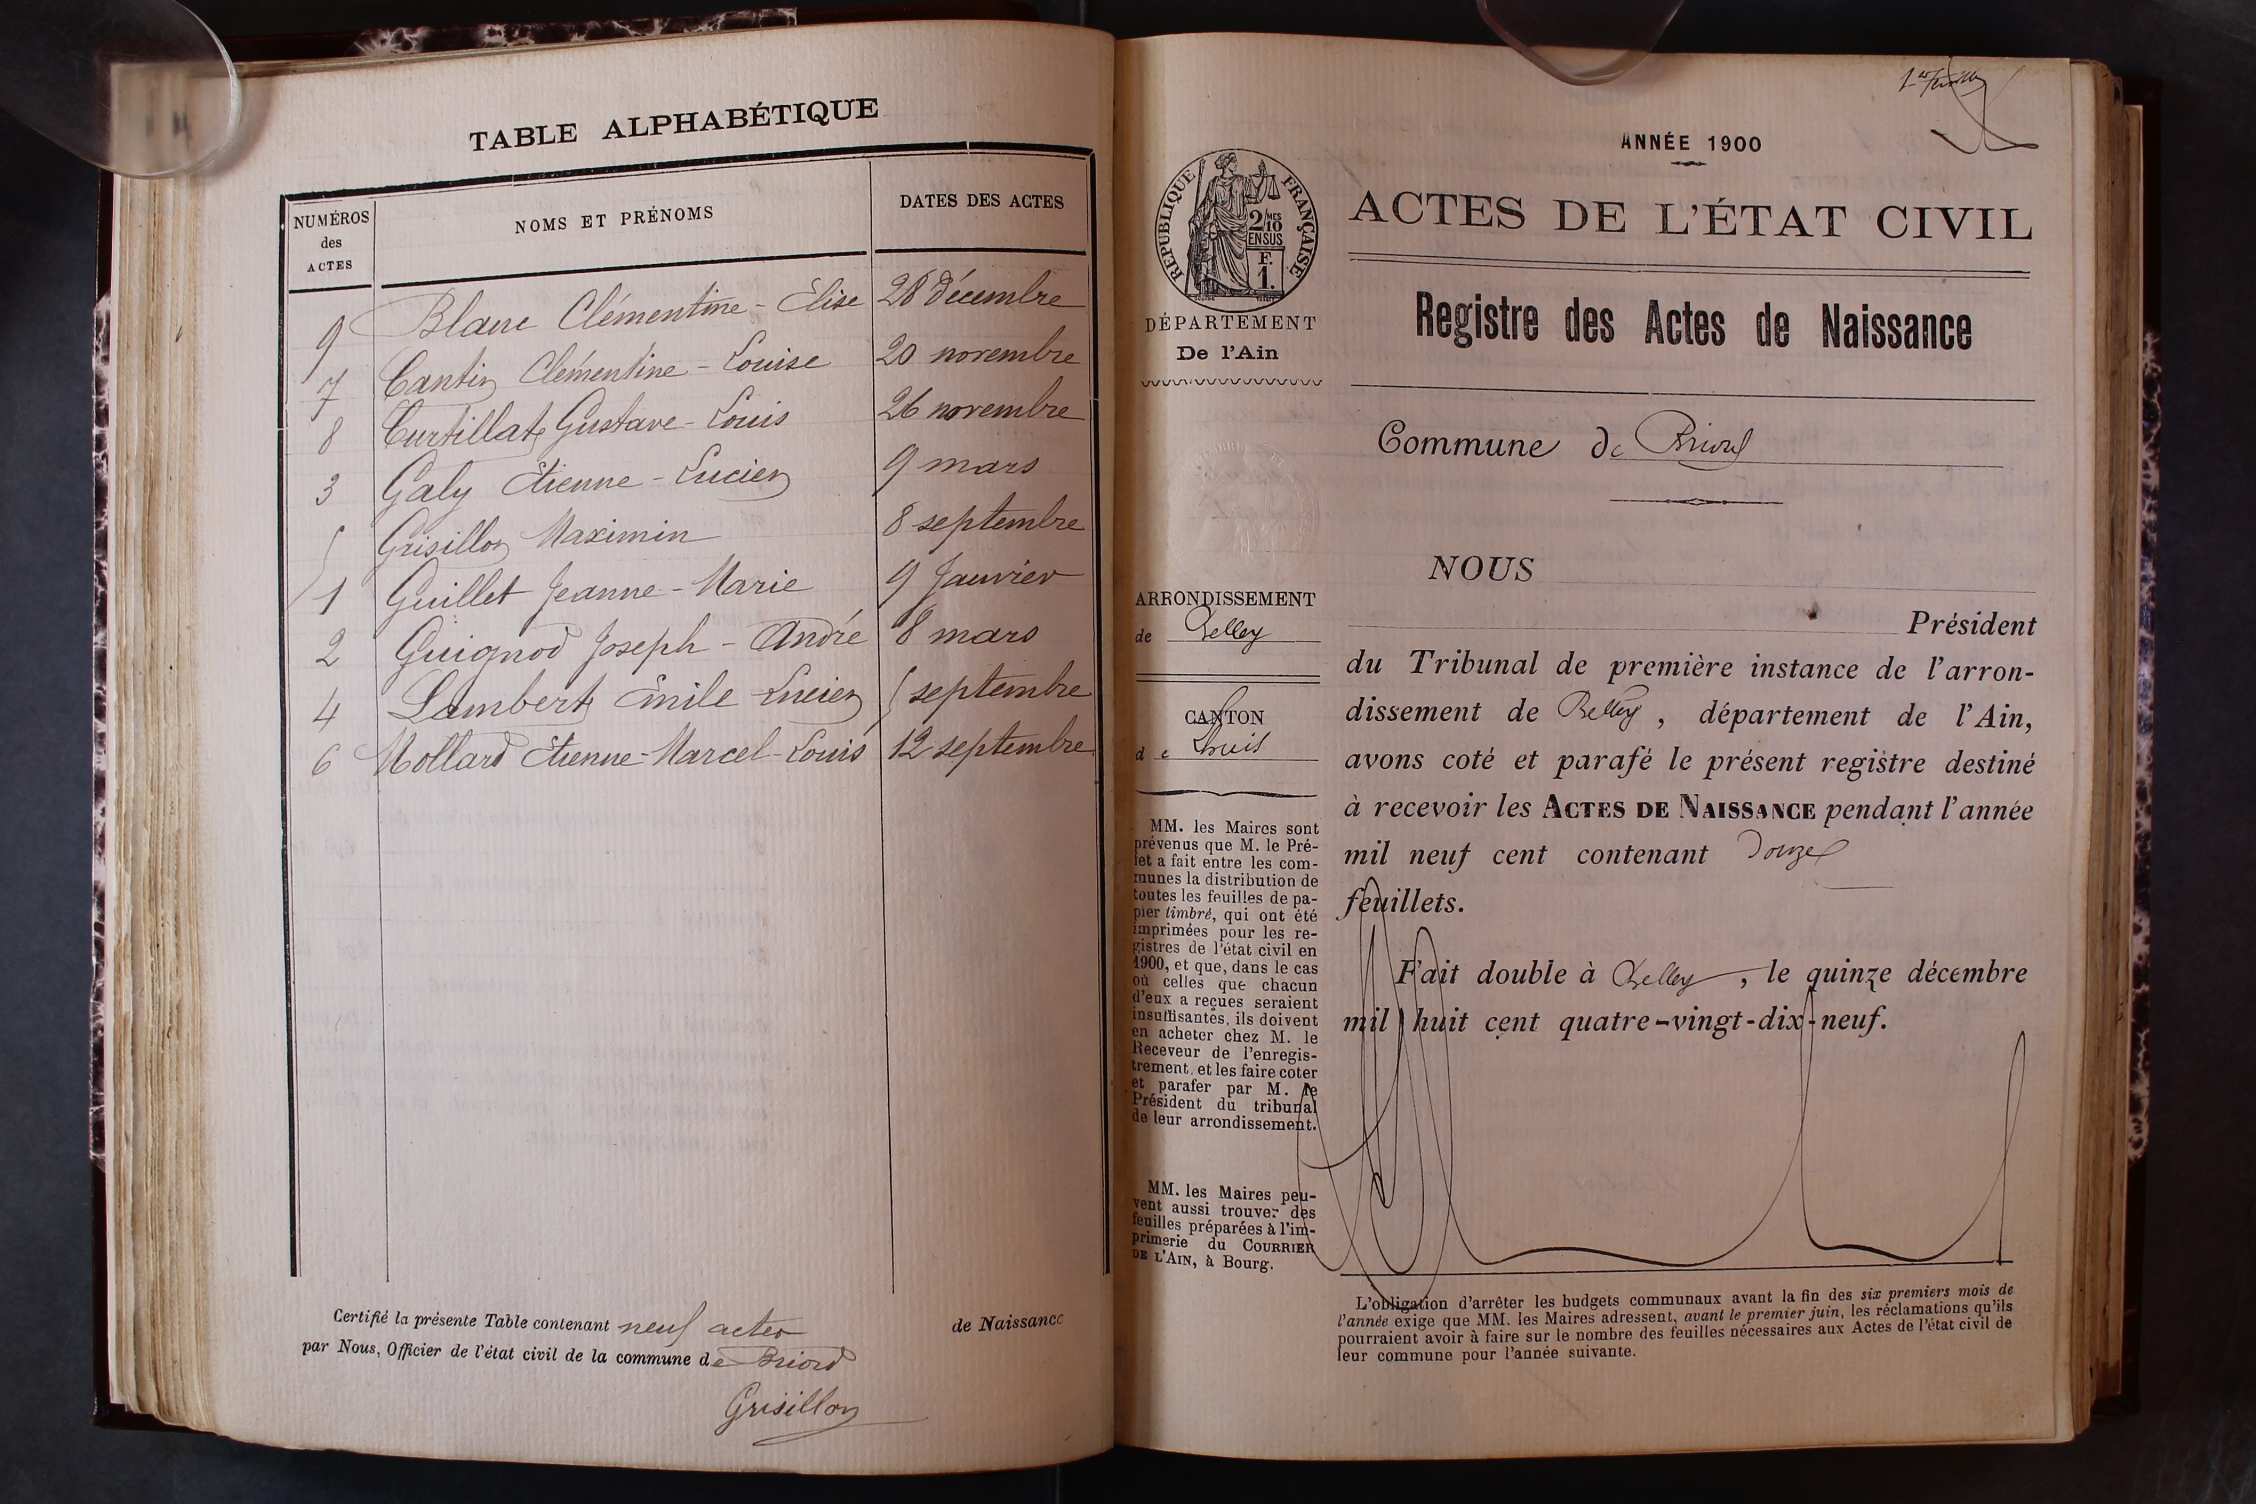 TABLE ALPHABÉTIQUE
NUMÉROS des ACTES
NOMS ET PRÉNOMS
DATES DES ACTES
9 Blanc Clémentine - Élise 28 décembre
7 Cantin Clémentine - Louise 20 novembre
8 Curtillat Gustave - Louis 26 novembre
3 Galy Etienne - Lucien 9 mars
5 Grisillon Maximin 8 septembre
1 Guillet Jeanne - Marie 9 Janvier
2 Guignod Joseph - André 8 mars
4 Lambert Émile Lucien 5 septembre
6 Mollard Etienne-Marcel-Louis 12 septembre
Certifié la présente Table contenant neuf actes de Naissance
par Nous, Officier de l'état civil de la commune de Briord
Grisillon
1er feuillet
ANNÉE 1900
RÉPUBLIQUE FRANÇAISE
2/10MES
EN SUS
F.
1.
DÉPARTEMENT
De l'Ain
ACTES DE L'ÉTAT CIVIL
Registre des Actes de Naissance
Commune de Briord
ARRONDISSEMENT
de Belley
CANTON
de Lhuis
MM. les Maires sont
prévenus que M. le Pré-
fet a fait entre les com-
munes la distribution de
toutes les feuilles de pa-
pier timbré, qui ont été
imprimées pour les re-
gistres de l'état civil en
1900, et que, dans le cas
où celles que chacun
d'eux a reçues seraient
insuffisantes, ils doivent
en acheter chez M. le
Receveur de l'enregis-
trement, et les faire coter
et parafer par M. le
Président du tribunal
de leur arrondissement.
MM. les Maires peu-
vent aussi trouver des
feuilles préparées à l'im-
primerie du COURRIER
DE L'AIN, à Bourg.
NOUS
Président
du Tribunal de première instance de l'arron-
dissement de Belley, département de l'Ain,
avons coté et parafé le présent registre destiné
à recevoir les ACTES DE NAISSANCE pendant l'année
mil neuf cent contenant douze
feuillets.
Fait double à Belley, le quinze décembre
mil huit cent quatre-vingt-dix-neuf.
L'obligation d'arrêter les budgets communaux avant la fin des six premiers mois de
l'année exige que MM. les Maires adressent, avant le premier juin, les réclamations qu'ils
pourraient avoir à faire sur le nombre des feuilles nécessaires aux Actes de l'état civil de
leur commune pour l'année suivante.